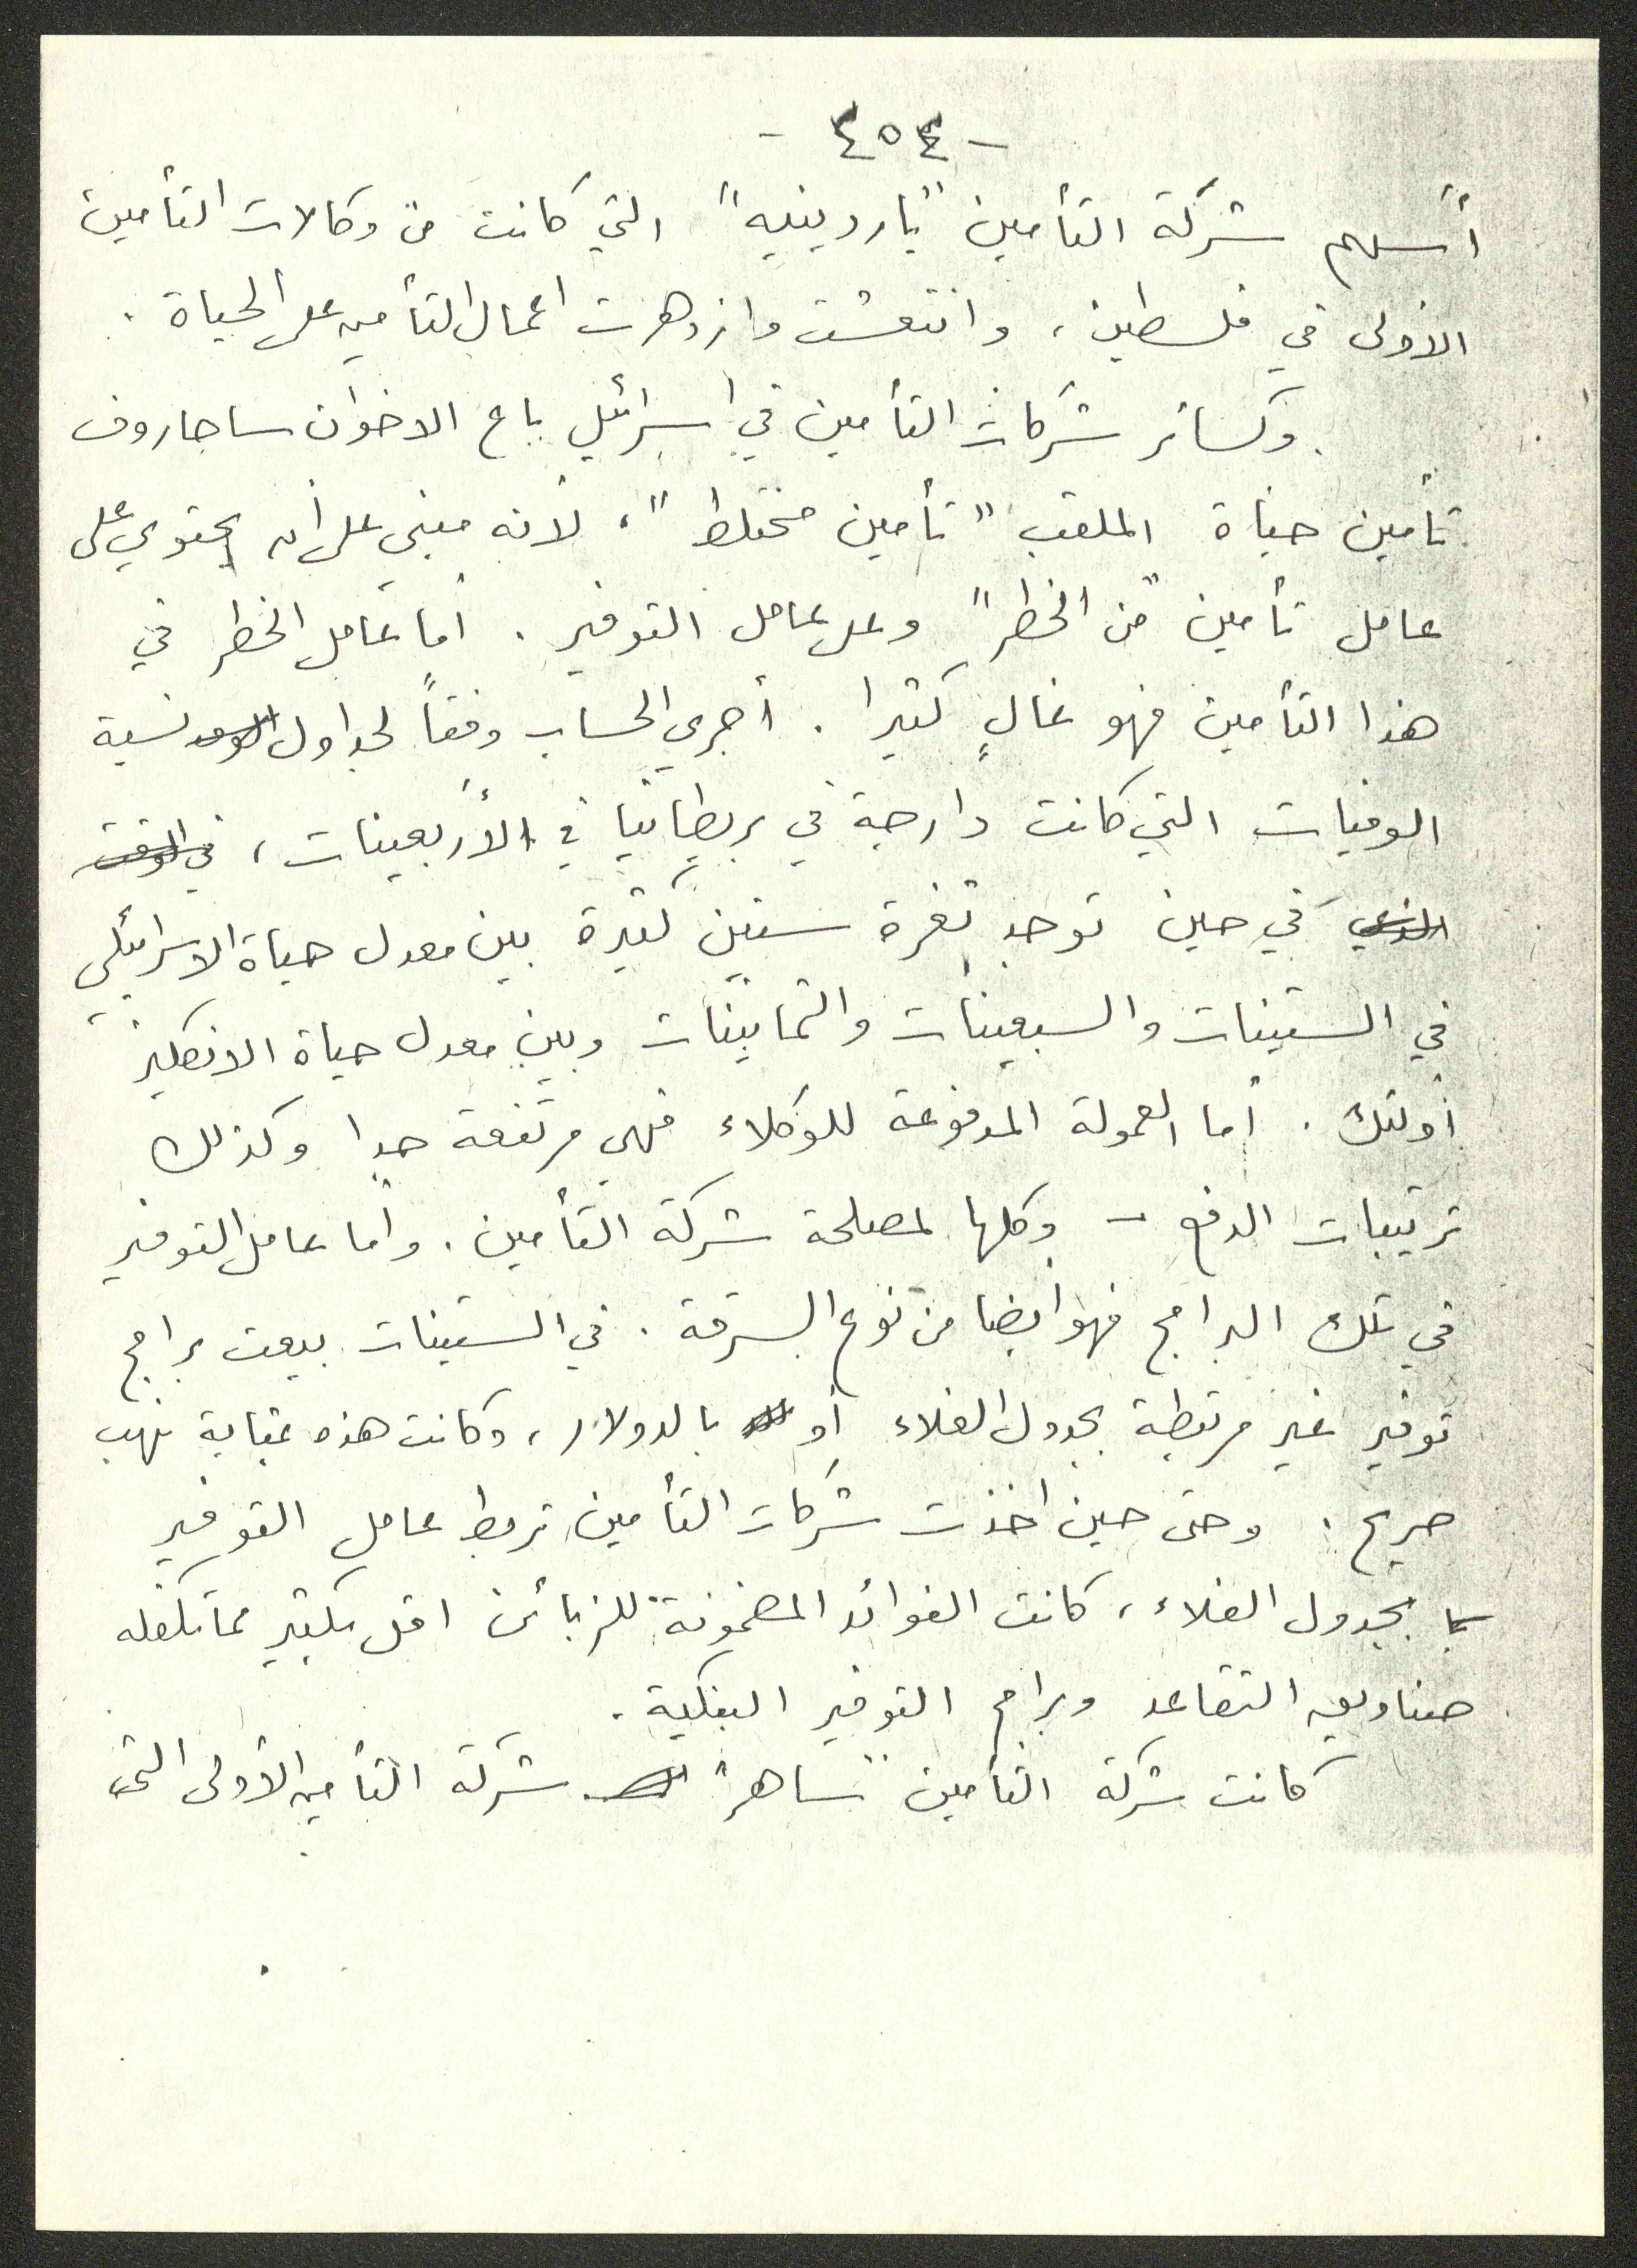 - ٤٥٤ -
أسهم شركة التأمين "ياردينيه" التي كانت من وكالات التأمين
الاولى في فلسطين، وانتعشت وازدهرت اعمال التأمين على الحياة.
وكسائر شركات التأمين في اسرائيل باع الاخوان ساحاروف
تأمين حياة الملقب "تأمين مختلط"، لانه مبني على أن يحتوي على
عامل تأمين "من الخطر" وعلى عامل التوفير. أما عامل الخطر في
هذا التأمين فهو غالٍ كثيرا. أجري الحساب وفقاً لجداول نسبة
الوفيات التي كانت دارجة في بريطانيا في الأربعينات، في الوقت
الذي في حين توجد ثغرة سنين كثيرة بين معدل حياة الاسرائيلي
في الستينات والسبعينات والثمانينات وبين معدل حياة الانكليز
أولئك. أما العمولة المدفوعة للوكلاء فهي مرتفعة جدا وكذلك
ترتيبات الدفع - وكلها لمصلحة شركة التأمين. وأما عامل التوفير
في تلك البرامج فهو أيضا من نوع السرقة. في الستينات بيعت برامج
توفير غير مرتبطة بجدول الغلاء أو بالدولار، وكانت هذه بمثابة نهب
صريح. وحتى حين اخذت شركات التأمين تربط عامل التوفير
بجدول الغلاء، كانت الفوائد المضمونة للزبائن اقل بكثير مما تكفله
صناديق التقاعد وبرامج التوفير البنكية.
كانت شركة التأمين "ساهر" شركة التأمين الأولى التي